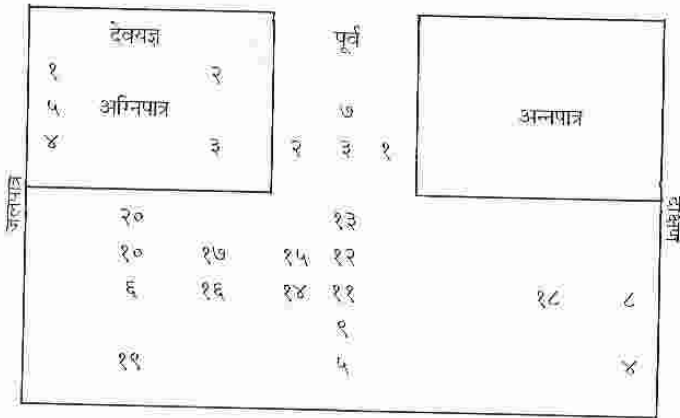 देवयज्ञ पूर्व
१ २
५ अग्निपात्र ७ अन्नपात्र
४ ३ २ ३ १
जलपात्र
दक्षिण
२० १३
१० १७ १५ १२
६ १६ १४ ११ १८ ८
९
१९ ५ ४